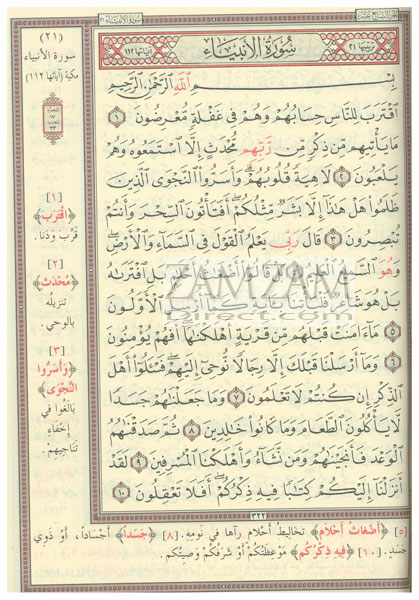 سورة الأنبياء ٢١
الجزء السابع عشر
ترتيبها ٢١
سُورَةُ الأَنبِيَاء
آياتها ١١٢
بِسْمِ اللَّهِ الرَّحْمَٰنِ الرَّحِيمِ
اقْتَرَبَ لِلنَّاسِ حِسَابُهُمْ وَهُمْ فِي غَفْلَةٍ مُّعْرِضُونَ ١
مَا يَأْتِيهِم مِّن ذِكْرٍ مِّن رَّبِّهِم مُّحْدَثٍ إِلَّا اسْتَمَعُوهُ وَهُمْ
يَلْعَبُونَ ٢ لَاهِيَةً قُلُوبُهُمْ وَأَسَرُّوا النَّجْوَى الَّذِينَ
ظَلَمُوا هَلْ هَٰذَا إِلَّا بَشَرٌ مِّثْلُكُمْ أَفَتَأْتُونَ السِّحْرَ وَأَنتُمْ
تُبْصِرُونَ ٣ قَالَ رَبِّي يَعْلَمُ الْقَوْلَ فِي السَّمَاءِ وَالْأَرْضِ
وَهُوَ السَّمِيعُ الْعَلِيمُ ٤ بَلْ قَالُوا أَضْغَاثُ أَحْلَامٍ بَلِ افْتَرَاهُ
بَلْ هُوَ شَاعِرٌ فَلْيَأْتِنَا بِآيَةٍ كَمَا أُرْسِلَ الْأَوَّلُونَ
٥ مَا آمَنَتْ قَبْلَهُم مِّن قَرْيَةٍ أَهْلَكْنَاهَا أَفَهُمْ يُؤْمِنُونَ
٦ وَمَا أَرْسَلْنَا قَبْلَكَ إِلَّا رِجَالًا نُّوحِي إِلَيْهِمْ فَسْـَٔلُوا أَهْلَ
الذِّكْرِ إِن كُنتُمْ لَا تَعْلَمُونَ ٧ وَمَا جَعَلْنَاهُمْ جَسَدًا
لَّا يَأْكُلُونَ الطَّعَامَ وَمَا كَانُوا خَالِدِينَ ٨ ثُمَّ صَدَقْنَاهُمُ
الْوَعْدَ فَأَنجَيْنَاهُمْ وَمَن نَّشَاءُ وَأَهْلَكْنَا الْمُسْرِفِينَ ٩ لَقَدْ
أَنزَلْنَا إِلَيْكُمْ كِتَابًا فِيهِ ذِكْرُكُمْ أَفَلَا تَعْقِلُونَ ١٠
٣٢٢
(٢١)
سورة الأنبياء
مكية (آياتها ١١٢)
[١]
﴿اقْتَرَبَ﴾
قَرُبَ وَدَنَا.
[٢]
﴿مُحْدَثٍ﴾
تنزيله
بالوحي.
[٣]
﴿وَأَسَرُّوا
النَّجْوَى﴾
بَالَغُوا في
إخفاء
تَنَاجِيهم.
[٥] ﴿أَضْغَاثُ أَحْلَامٍ﴾ تخاليط أحلام رآها في نومه. [٨] ﴿جَسَدًا﴾ أجساداً، أو ذوي
جَسَدٍ. [١٠] ﴿فِيهِ ذِكْرُكُمْ﴾ مَوْعِظَتُكُمْ أَوْ شَرَفُكُمْ وَصِيتُكُم.
ZAMZAM
Direct.com